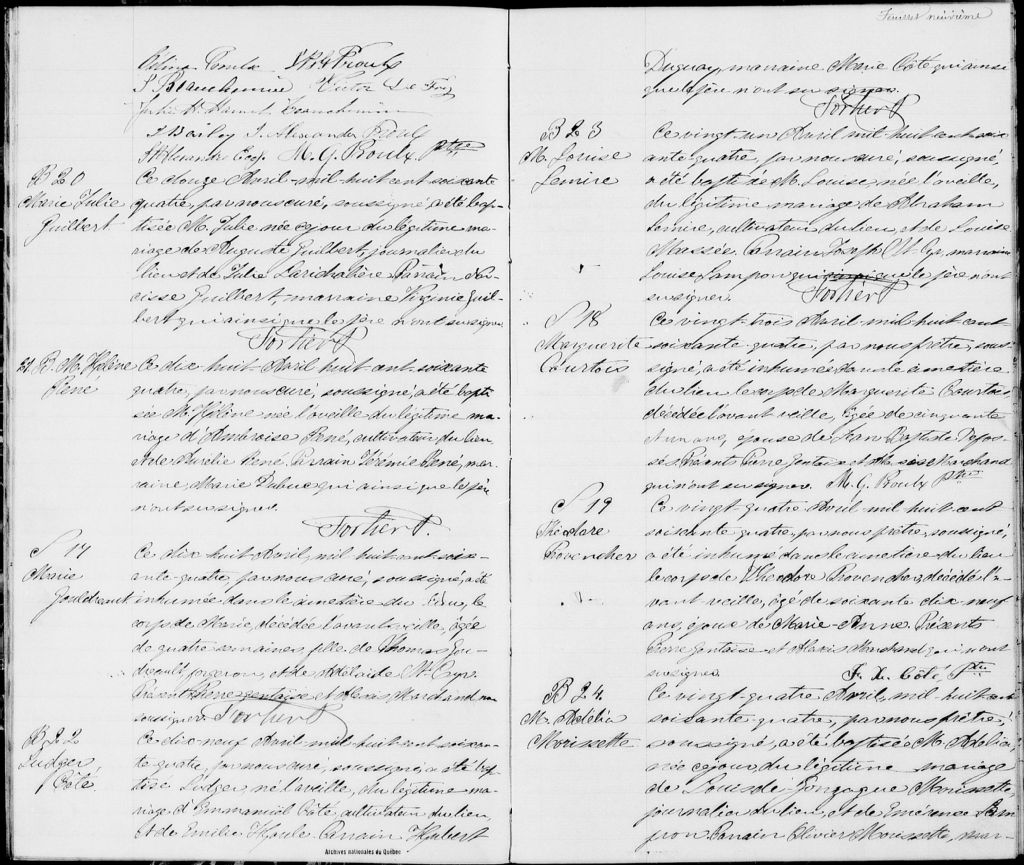 Feuillet neuvième
Célina Proulx St H. Proulx
Victor
Julie
Bailey J. Alexandre Proulx
M. G. Proulx Ptre
B 20
Marie Julie
Guilbert
Ce douze Avril mil huit cent soixante
quatre, par nous curé, soussigné, a été bap-
tisée M. Julie, née ce jour du légitime ma-
riage de Auguste Guilbert, journalier du
lieu et de Julie Parrain Nar-
cisse Guilbert, marraine Virginie Guil-
bert qui ainsi que le père n'ont su signer.
Fortier P
21. B. M. Hélène
René
Ce dix huit Avril huit cent soixante
quatre, par nous curé, soussigné, a été bapti-
sée M. Hélène née la veille du légitime ma-
riage d'Ambroise René, cultivateur du lieu,
et de Aurélie René. Parrain Jérémie René, mar-
raine, Marie Dubuc qui ainsi que le père
n'ont su signer.
Fortier P.
S 17
Marie
Gouldreault
Ce dix huit Avril, mil huit cent soix-
ante-quatre, par nous curé, soussigné, a été
inhumée dans le cimetière du lieu, le
corps de Marie, décédée l'avant veille, âgée
de quatre semaines, fille de Thomas Gou-
dreault, forgeron, et de Adélaïde St Cyr.
Présents Pierre Gentaise et Alexis Marchand non
soussignés. Fortier P
B 22
Ludger
Côté
Ce dix-neuf Avril mil huit cent soixan-
te quatre, par nous curé, soussigné, a été bap-
tisé Ludger, né la veille, du légitime ma-
riage d'Emmanuel Côté, cultivateur du lieu,
et de Emilie Houle. Parrain Hubert
Duguay, marraine Marie Côté qui ainsi
que le père n'ont su signer.
Fortier P
B 23
M. Louise
Lemire
Ce vingt un Avril mil huit cent soix-
ante-quatre, par nous curé, soussigné,
a été baptisée M. Louise, née la veille,
du légitime mariage de Abraham
Lemire, cultivateur du lieu, et de Louise
Massée. Parrain Joseph St Cyr, marraine
Louise Lampron qui ainsi que le père n'ont
su signer. Fortier P
S 18
Marguerite
Courtois
Ce vingt-trois Avril mil huit cent
soixante quatre, par nous prêtre, sous-
signé, a été inhumée dans le cimetière
du lieu le corps de Marguerite Courtois,
décédée l'avant veille, âgée de cinquante
et un ans, épouse de Jean Baptiste
Présents Pierre Gentaise et Alexis Marchand
qui n'ont su signer. M. G. Proulx Ptre
S 19
Théodore
Provencher
Ce vingt quatre Avril mil huit cent
soixante quatre, par nous prêtre, soussigné,
a été inhumé dans le cimetière du lieu
le corps de Théodore Provencher, décédé l'a-
vant veille, âgé de soixante dix-neuf
ans, époux de Marie-Anne. Présents
Pierre Gentaise et Alexis Marchand qui n'ont
su signer. F. X. Côté, Ptre
B 24
M. Adélia
Morissette
Ce vingt quatre Avril, mil huit cent
soixante-quatre, par nous prêtre,
soussigné, a été baptisée M. Adélia,
née ce jour du légitime mariage
de Louis de Gonzague Morissette,
journalier du lieu, et de Emérence Lam-
pron Parrain Olivier Morissette, mar-
Archives nationales du Québec